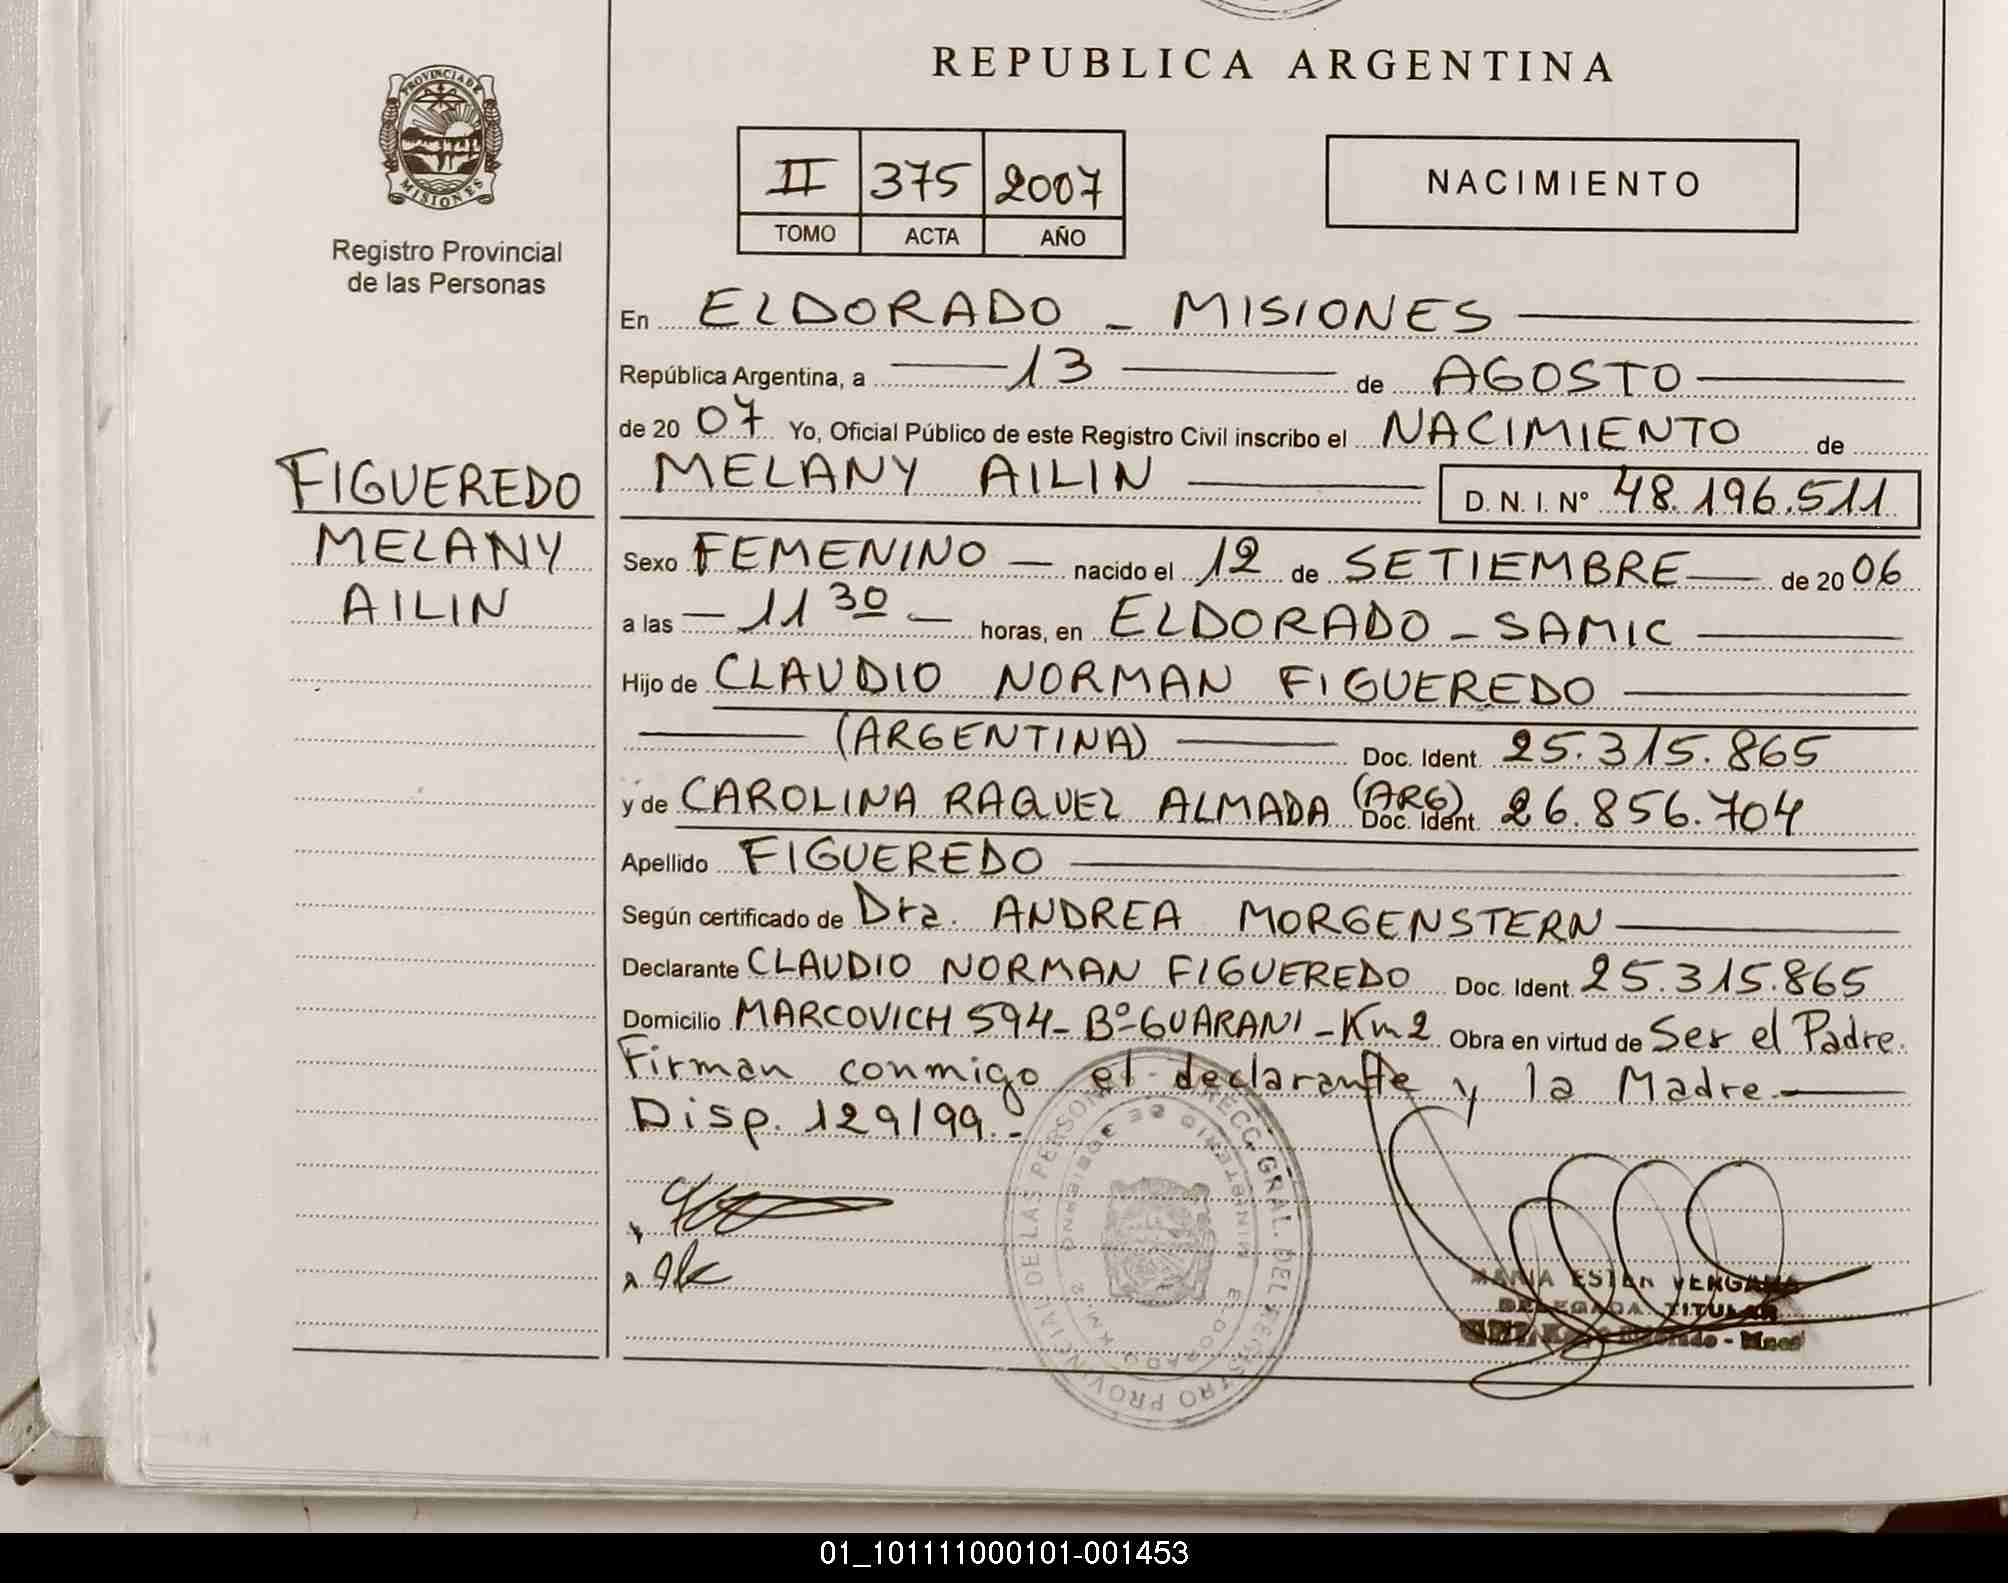 REPUBLICA ARGENTINA
PROVINCIA DE
MISIONES
Registro Provincial
de las Personas
II 375 2007
TOMO ACTA AÑO
NACIMIENTO
FIGUEREDO
MELANY
AILIN
En ELDORADO - MISIONES
República Argentina, a 13 de AGOSTO
de 20 07 Yo, Oficial Público de este Registro Civil inscribo el NACIMIENTO de
MELANY AILIN D. N. I. Nº 48.196.511
Sexo FEMENINO nacido el 12 de SETIEMBRE de 20 06
a las 11 30 horas, en ELDORADO - SAMIC
Hijo de CLAUDIO NORMAN FIGUEREDO
(ARGENTINA) Doc. Ident. 25.315.865
y de CAROLINA RAQUEL ALMADA (ARG) Doc. Ident. 26.856.704
Apellido FIGUEREDO
Según certificado de Dra. ANDREA MORGENSTERN
Declarante CLAUDIO NORMAN FIGUEREDO Doc. Ident. 25.315.865
Domicilio MARCOVICH 594 - Bº - GUARANI - Km 2 Obra en virtud de Ser el Padre.
Firman conmigo el declarante y la Madre
Disp. 129/99.-
DIRECC. GRAL. DEL REGISTRO PROVINCIAL DE LAS PERSONAS
MINISTERIO DE GOBIERNO
ELDORADO KM. 2
MARIA ESTER VERGARA
DELEGADA TITULAR
01_101111000101-001453